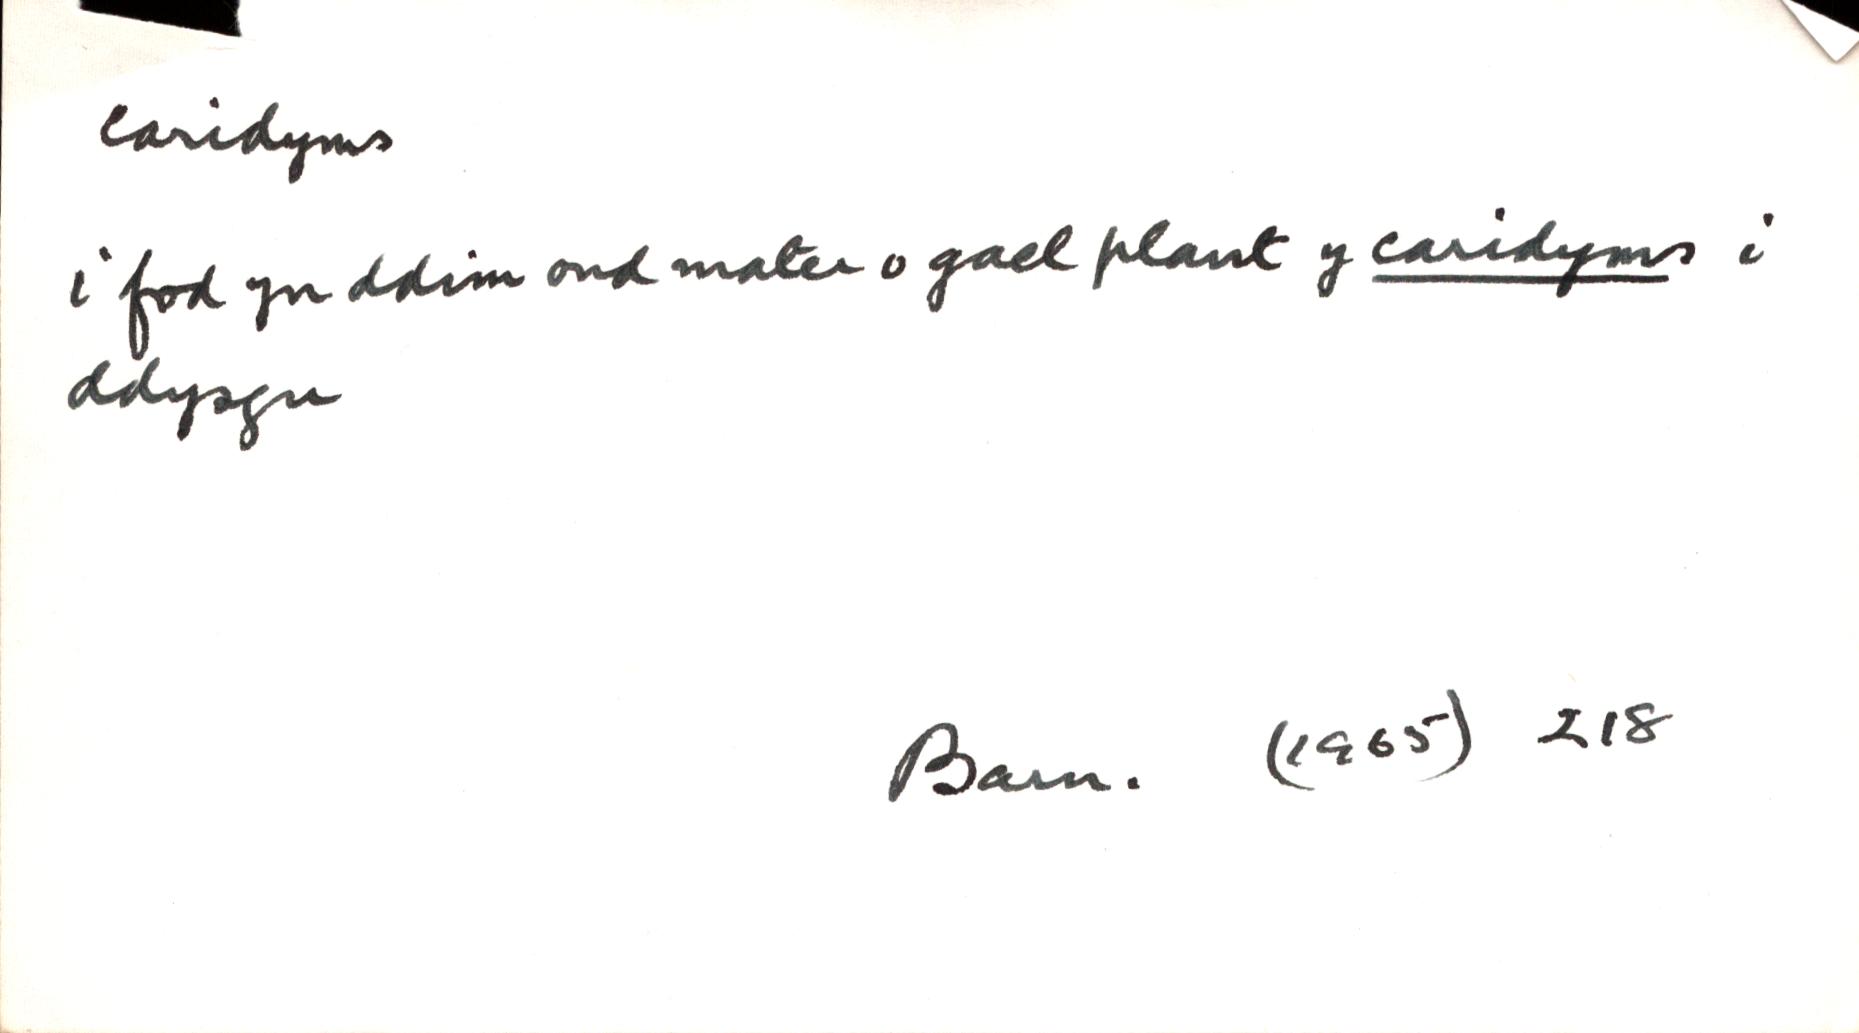 caridyms
i fod yn ddim ond mater o gael plant y caridyms i
ddysgu
Barn. (1965) 218